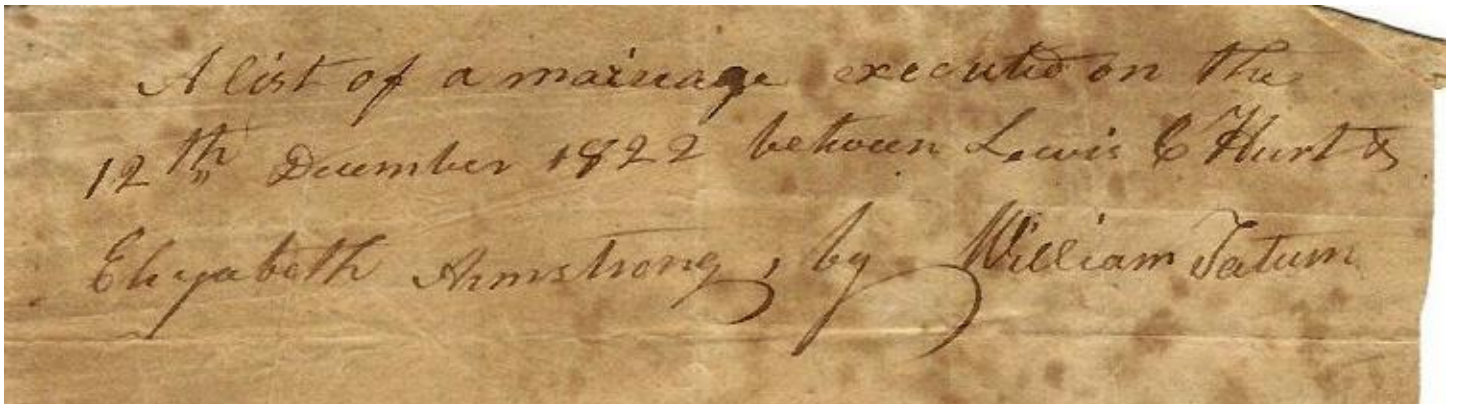 A list of a mairiage executed on the
12th December 1822 between Lewis C Hurt &
Elizabeth Armstrong, by William Tatum